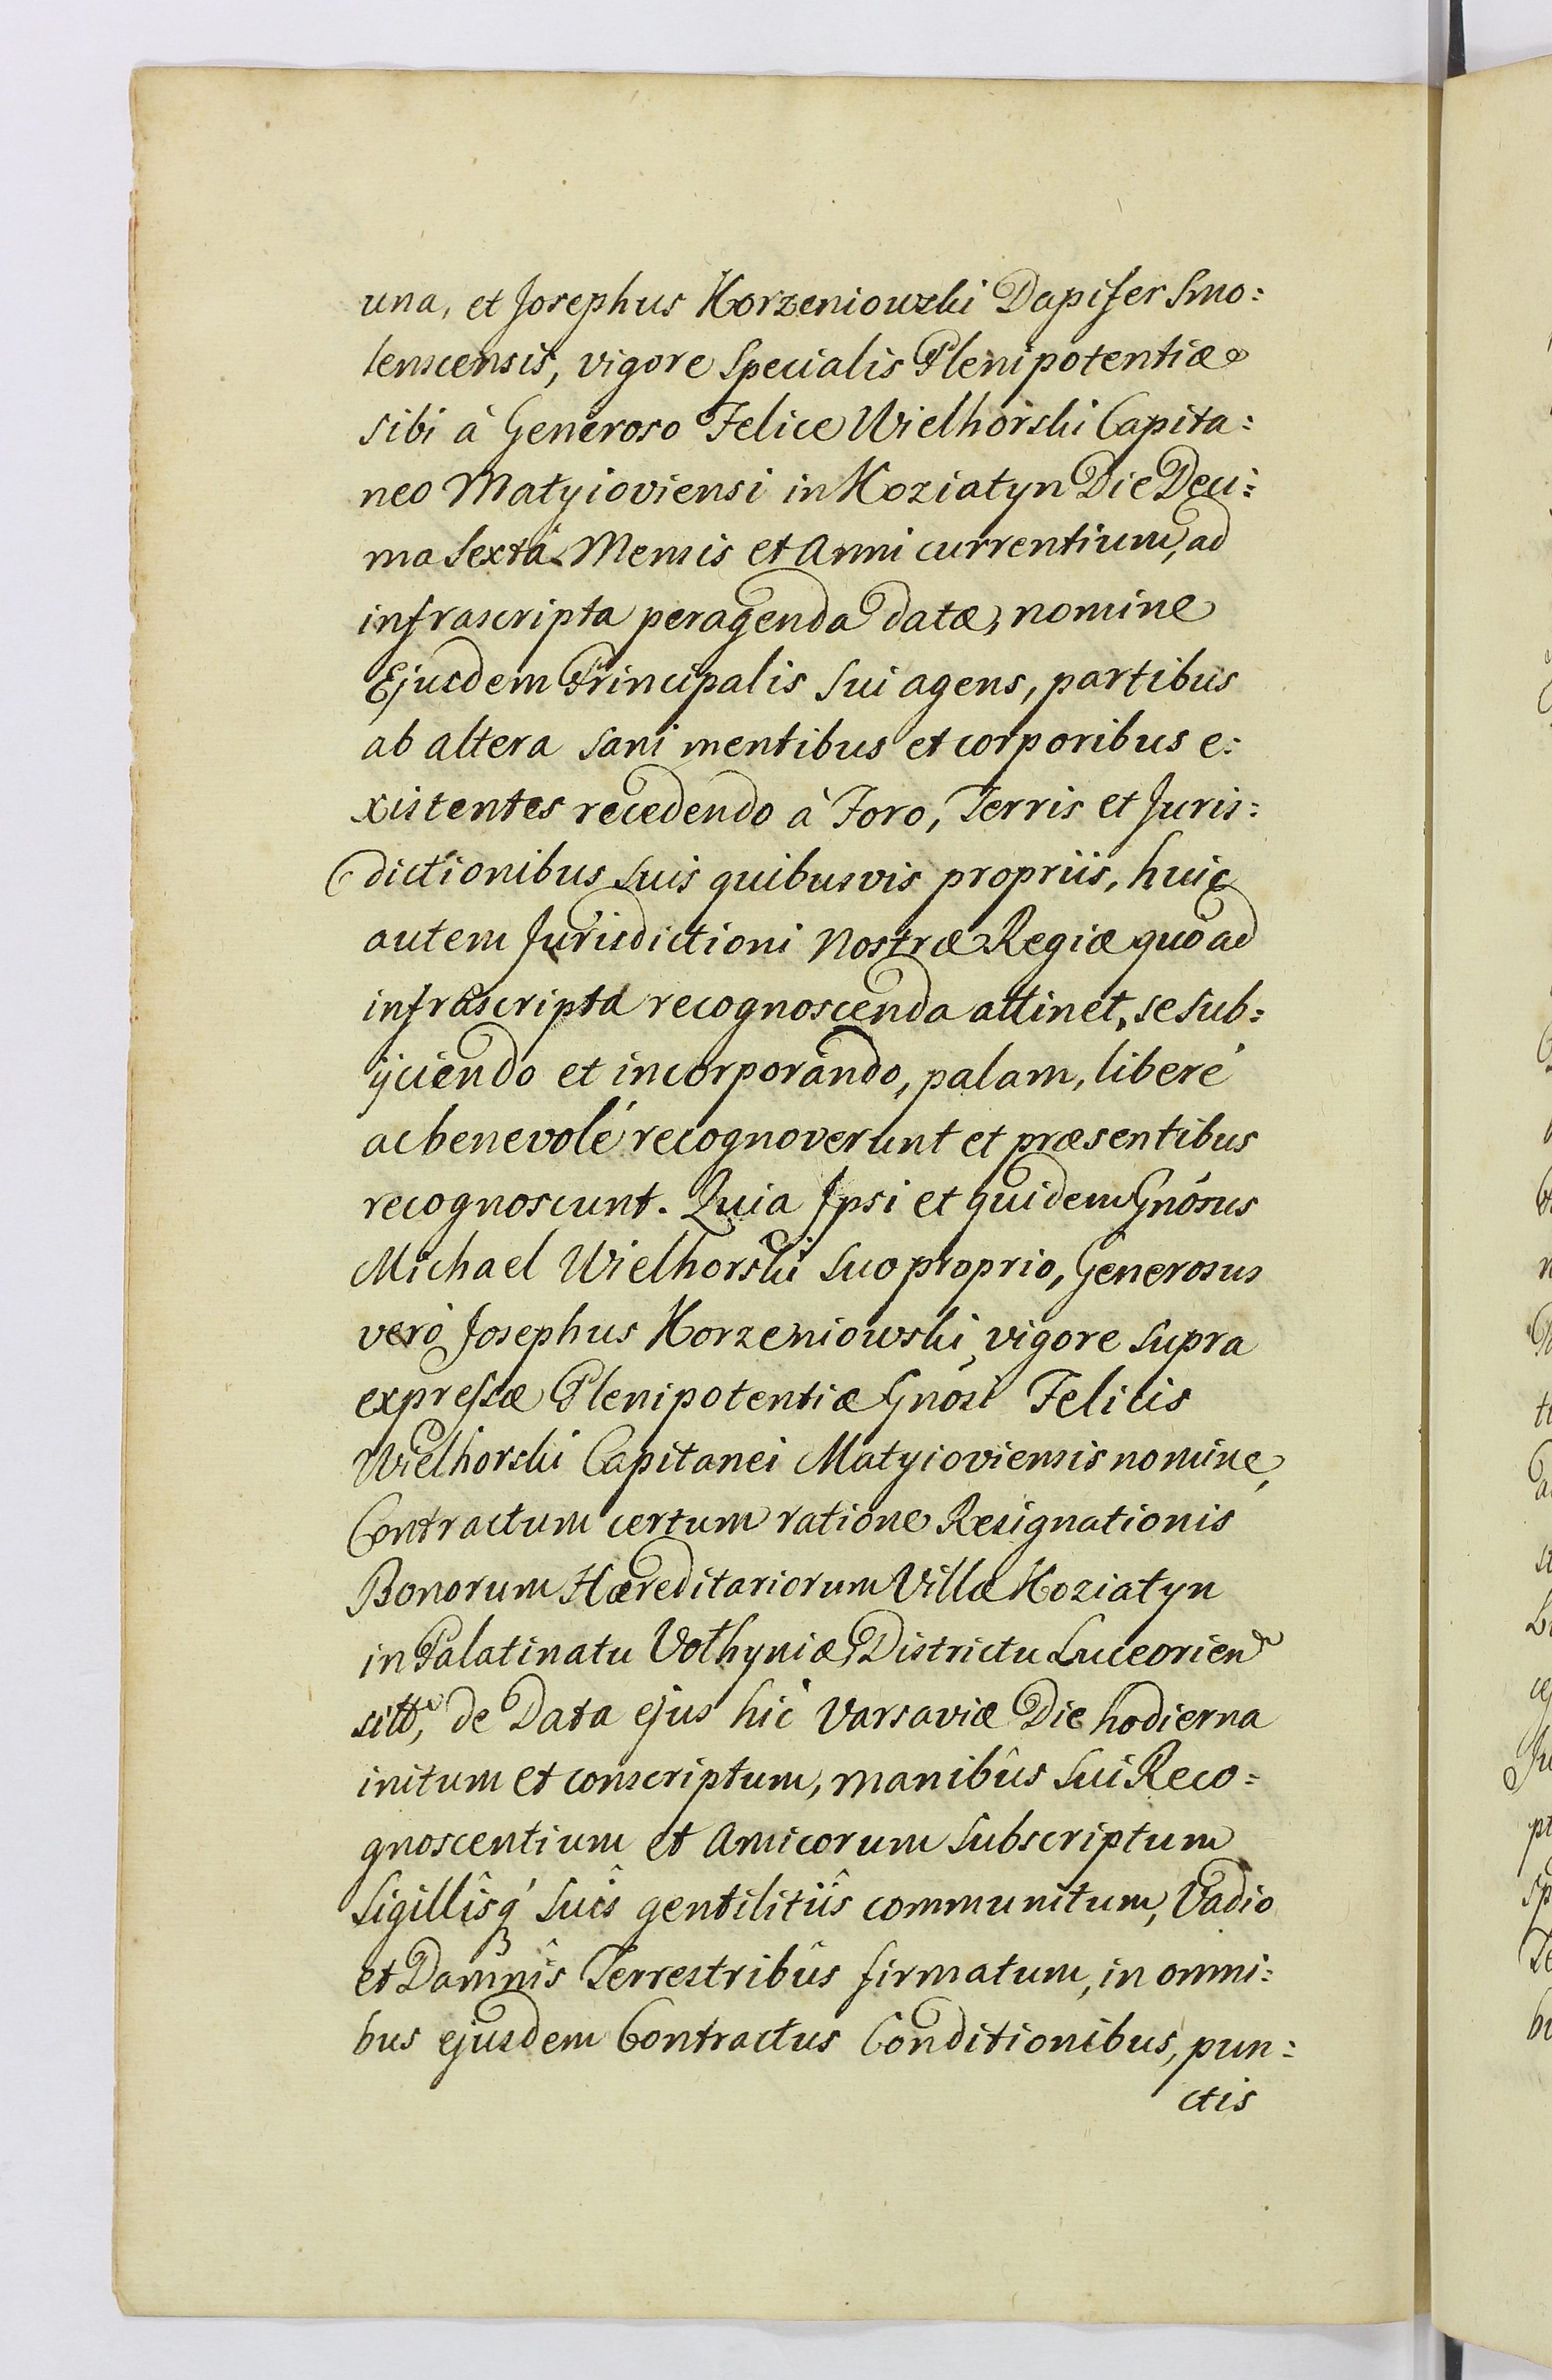 una, et Josephus Korzeniowski Dapifer Smo:
lenscensis, vigore Specialis Plenipotentiæ
sibi à Generoso Felice Wielhorski Capita:
neo Matyioviensi in Koziatyn Die Deci:
ma Sexta Mensis et Anni currentium, ad
infrascripta peragenda datæ, nomine
Ejusdem Principalis Sui agens, partibus
ab altera Sani mentibus et corporibus e:
xistentes recedendo à Foro, Terris et Juris:
dictionibus Suis quibusvis propriis, huic
autem Jurisdictioni Nostræ Regiæ quò ad
infrascripta recognoscenda attinet, se sub:
ijciendo et incorporando, palam, liberé
ac benevolé recognoverunt et præsentibus
recognoscunt. Quia Ipsi et quidem Gnósus
Michael Wielhorski Suo proprio, Generosus
verò Josephus Korzeniowski, vigore Supra
expressæ Plenipotentiæ Gnósi Felicis
Wielhorski Capitanei Matyioviensis nomine,
Contractum certum ratione Resignationis
Bonorum Hæreditariorum Villæ Koziatyn
in Palatinatu Volhyniæ, Districtu Luceorien
sitt, de Data ejus hic Varsaviæ Die hodierna
initum et conscriptum, manibûs Sui Reco:
gnoscentium et Amicorum Subscriptum
Sigillîsq́ Suîs gentilitiîs communitum, Vadio
et Damnîs Terrestribûs firmatum, in omni:
bus ejusdem Contractus Conditionibus, pun:
ctis